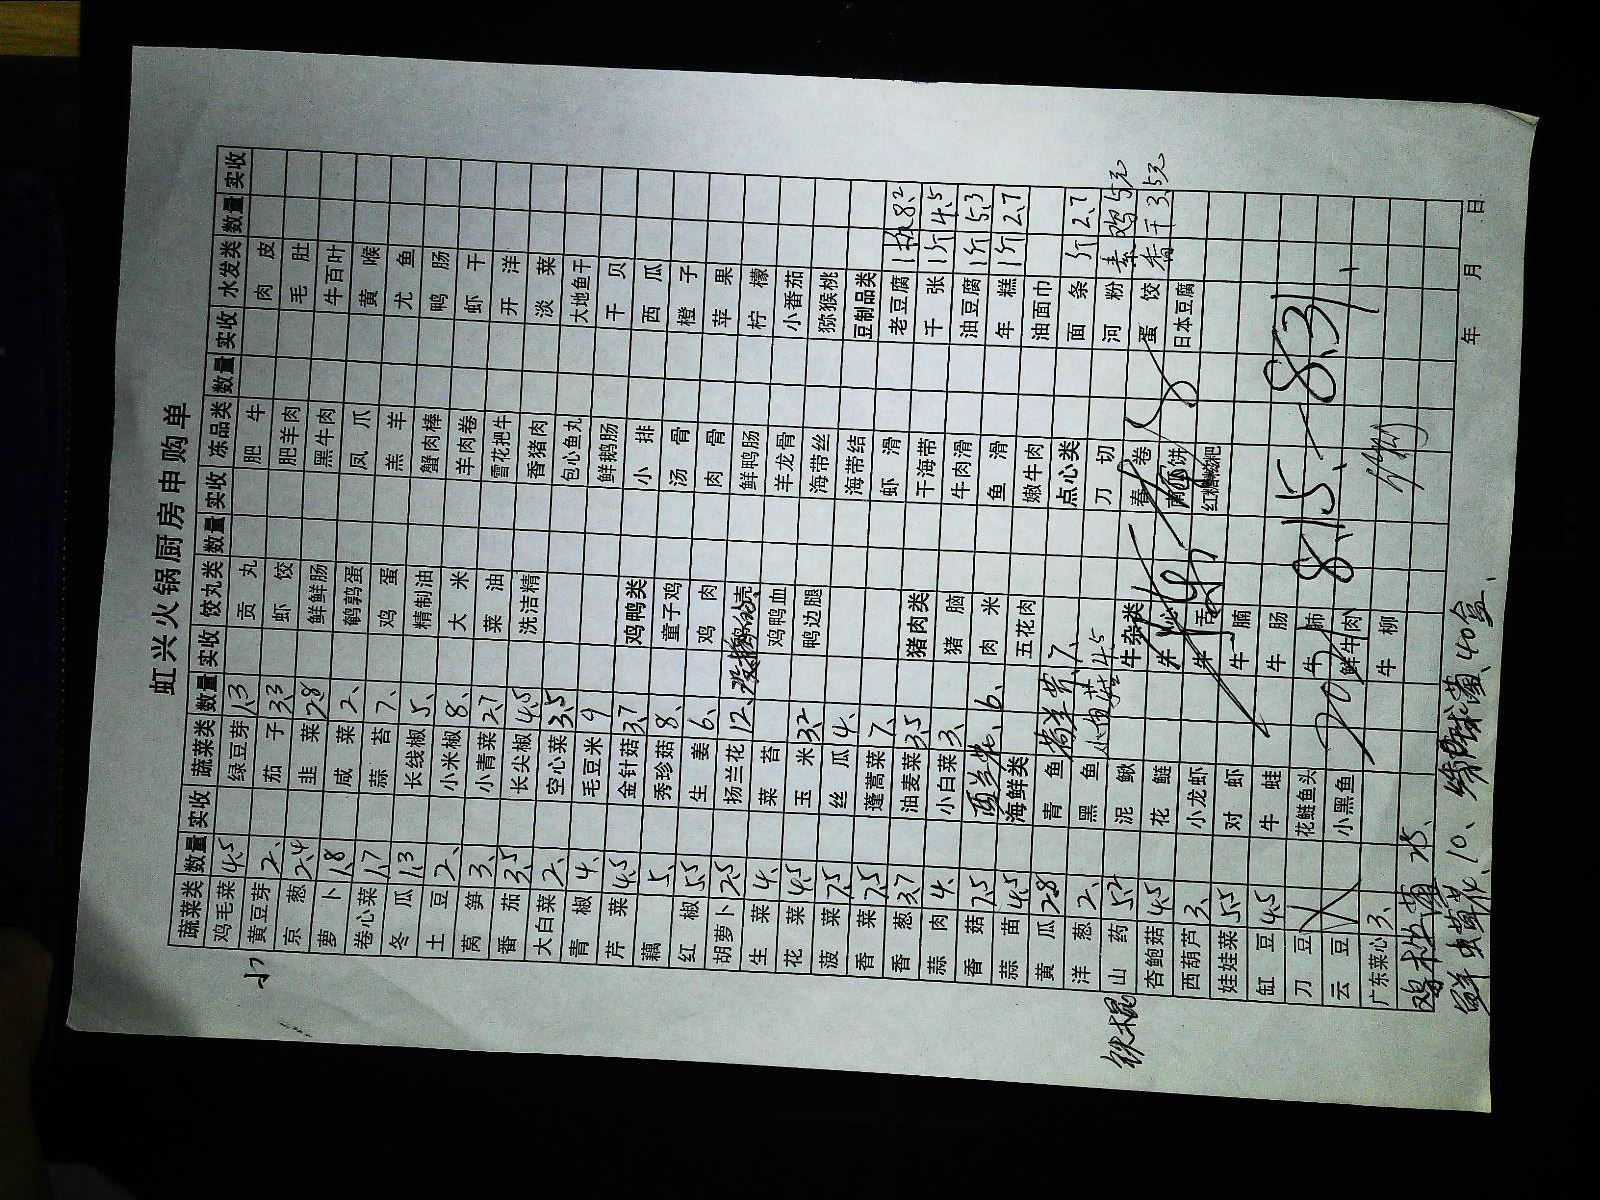 虹兴火锅厨房申购单
蔬菜类 数量 实收 蔬菜类 数量 实收 饺丸类 数量 实收 冻品类 数量 实收 水发类 数量 实收
鸡毛菜 4.5 绿豆芽 1.3 贡丸 肥牛 肉皮
黄豆芽 2、 茄子 3.3 虾饺 肥羊肉 毛肚
京葱 2.4 韭菜 2.8 鲜鲜肠 黑牛肉 牛百叶
萝卜 1.8 咸菜 2、 鹌鹑蛋 凤爪 黄喉
卷心菜 1.7 蒜苔 7、 鸡蛋 羔羊 尤鱼
冬瓜 1.3 长线椒 5、 精制油 蟹肉棒 鸭肠
土豆 2、 小米椒 8、 大米 羊肉卷 虾干
莴笋 3、 小青菜 2.7 菜油 雪花把牛 开洋
番茄 3.5 长尖椒 4.5 洗洁精 香猪肉 淡菜
大白菜 2、 空心菜 3.5 包心鱼丸 大地鱼干
青椒 4、 毛豆米 9 鲜鹅肠 干贝
芹菜 4.5 金针菇 3.7 鸡鸭类 小排 西瓜
藕 5、 秀珍菇 8、 童子鸡 汤骨 橙子
红椒 5.5 生姜 6、 鸡肉 肉骨 苹果
胡萝卜 2.5 扬兰花 12、 鲜鸭肠 柠檬
生菜 4、 菜苔 鸡鸭血 羊龙骨 小番茄
花菜 4.5 玉米 3.2 鸭边腿 海带丝 猕猴桃
菠菜 7.5 丝瓜 4、 海带结 豆制品类
香菜 7.5 蓬蒿菜 7、 虾滑 老豆腐 1板 8.2
香葱 3.7 油麦菜 3.5 猪肉类 干海带 千张 1斤 4.5
蒜肉 4、 小白菜 3、 猪脑 牛肉滑 油豆腐 1斤 5.3
香菇 7.5 西兰花 6、 肉米 鱼滑 年糕 1斤 2.7
蒜苗 4.5 海鲜类 五花肉 嫩牛肉 油面巾
黄瓜 2.8 青鱼 7、 点心类 面条 斤 2.7
洋葱 2、 黑鱼 4.5 刀切 河粉 素鸡 5元
铁棍 山药 5.2 泥鳅 牛杂类 春卷 蛋饺 香干 3.5元
杏鲍菇 4.5 花鲢 南瓜饼 日本豆腐
西葫芦 3、 小龙虾 红糖糍粑
娃娃菜 5.5 对虾 牛腩
缸豆 4.5 牛蛙 牛肠
刀豆 花鲢鱼头 牛肺 8.15、—8.31、
云豆 小黑鱼 鲜牛肉
广东菜心 3、 牛柳
年 月 日
鲜虫草花、10、 40盒、